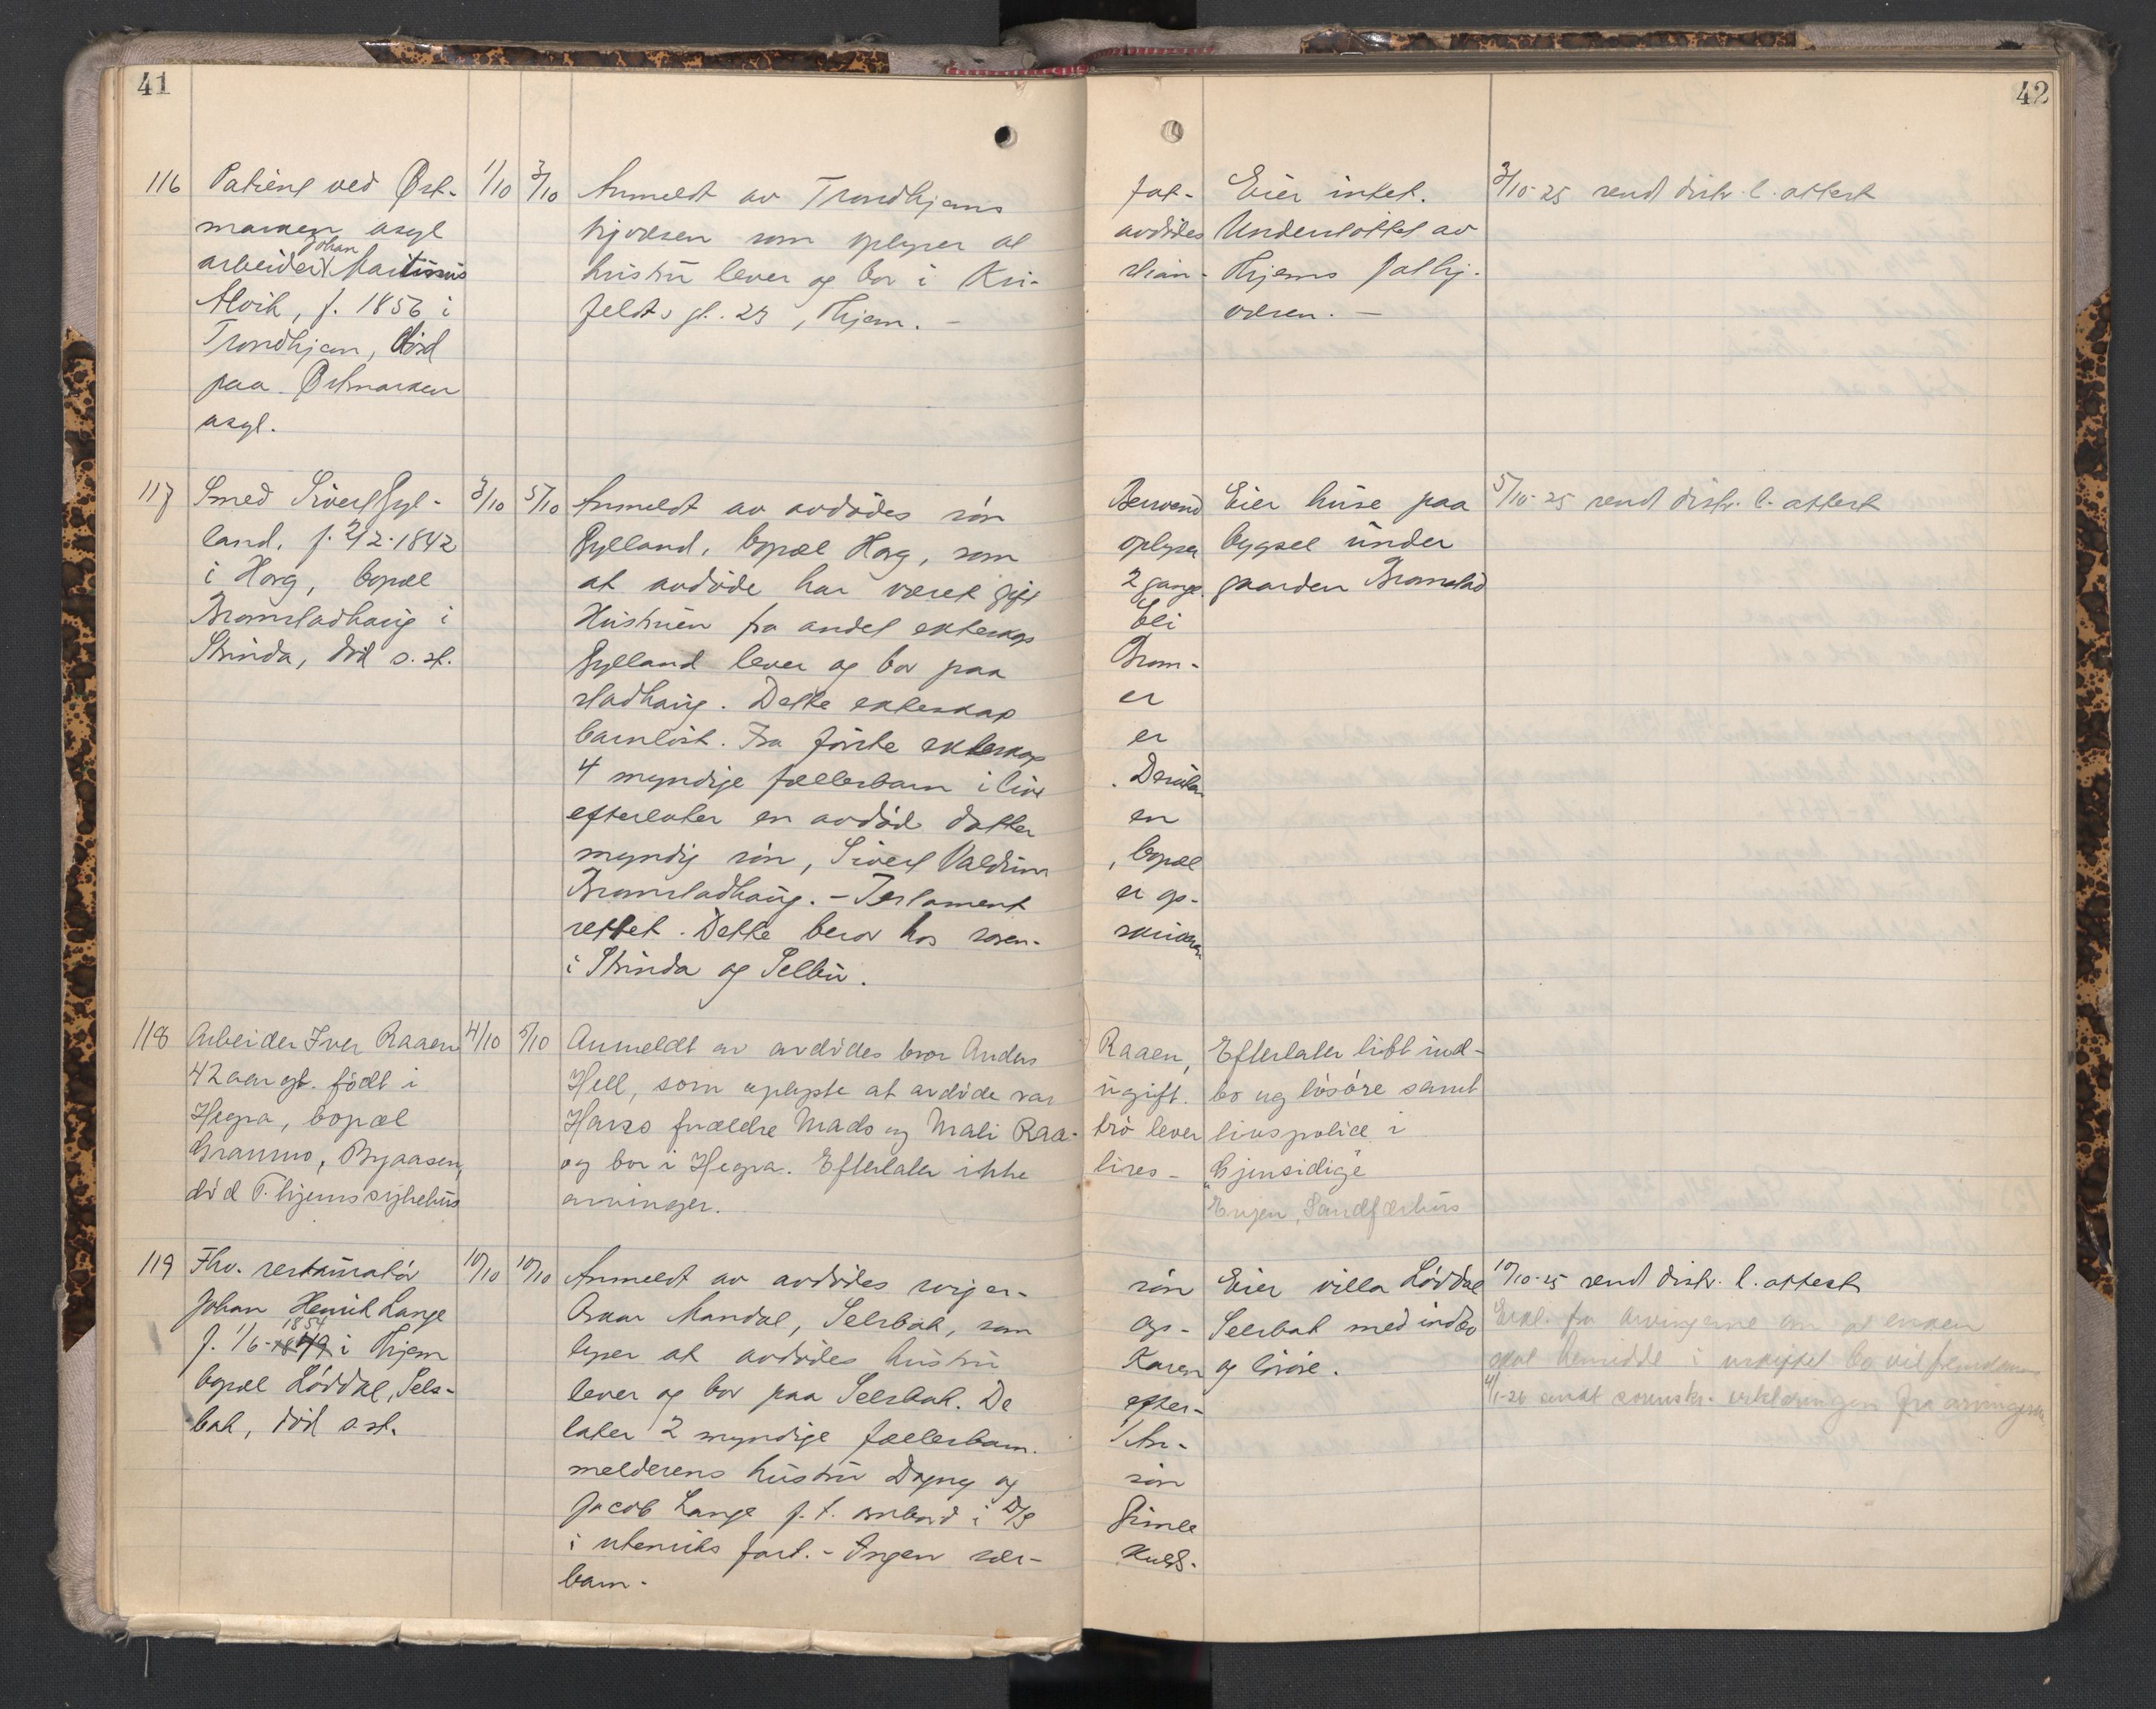 41
42
116 Patient ved Øst- 1/10 3/10 Anmeldt av Trondhjems fat- Eier intet. 3/10-25 sendt distr. l. attest
marken asyl hjvæsen som oplyser at avdødes Understøttet av
Johan
arbeider Martinus hustru lever og bor i Kri- stian- Thjems fathj.
Alvik, f. 1856 i feldts gt. 23, Thjem. - væsen. -
Trondhjem, død
paa Østmarken
asyl.
117 Smed Sivert Gyl- 3/10 5/10 Anmeldt av avdødes søn Bernard Eier huse paa 5/10-25 sendt distr. l. attest
land, f. 2/2-1842 Gylland, bopæl Horg, som oplyser bygsel under
i Horg, bopæl at avdøde har været gift 2 gange. gaarden Bromstad
Bromstadhaug i Hustruen fra andet ekteskap Eli
Strinda, død s. st. Gylland lever og bor paa Brom-
stadhaug. Dette ekteskap er
barnløst. Fra første ekteskap er
4 myndige fællesbarn i live. Desuten
efterlater en avdød datter en
myndig søn, Sivert Valdem , bopæl
Bromstadhaug. - Testament er op-
rettet. Dette beror hos soren- skriveren
i Strinda og Selbu.
118 Arbeider Iver Raaen 4/10 5/10 Anmeldt av avdødes bror Anders Raaen, Efterlater litt ind-
42 aar gl. født i Hell, som oplyste at avdøde var ugift. bo og løsøre samt
Hegra, bopæl Hans forældre Mads og Mali Raa- trø lever livspolice i
Granmo, Byaasen, og bor i Hegra. Efterlater ikke livs- "Gjensidige"
død T.hjems sykehus arvinger. Engen, Sandfærhus
119 Fhv. restauratør 10/10 10/10 Anmeldt av avdødes sviger- søn Eier villa Løddal 10/10-25 sendt distr. l. attest
Johan Henrik Lange Oskar Mandal, Selsbak, som op- Selsbak med indbo Erkl. fra arvingerne om at enken
1854
f. 1/6-1849 i Thjem lyser at avdødes hustru Karen og løsøre. skal hensidde i uskiftet bo vil fremkomme
bopæl Løddal, Sels- lever og bor paa Selsbak. De efter- 4/1-26 sendt sorenskr. erklæringen fra arvingerne
bak, død s. st. later 2 myndige fællesbarn. An-
melderens hustru Dagny og søn
Jacob Lange f. t. ombord i D/S Gimle
i utenriks fart. - Ingen sær- kulds-
barn -